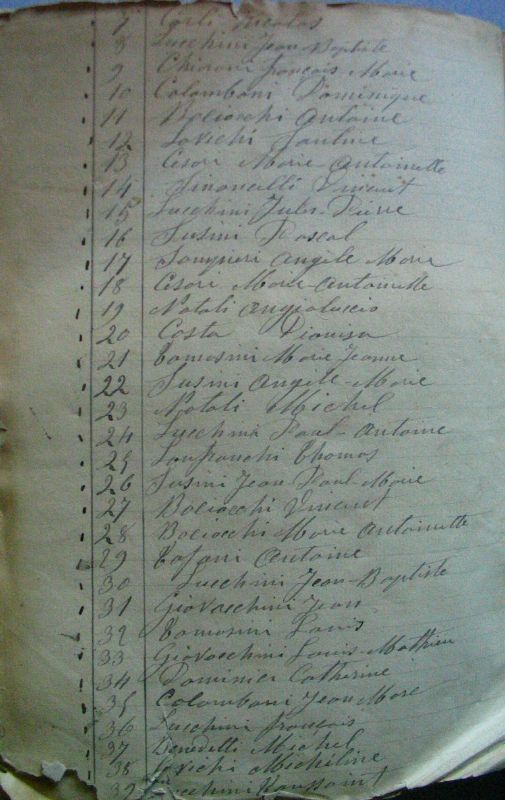 7 Carli Nicolas
8 Lucchini Jean-Baptiste
9 François-Marie
10 Colombani Dominique
11 Baciocchi Antoine
12 Lovichi Pauline
13 Cesari Marie-Antoinette
14 Simoncelli Vincent
15 Lucchini Jules-Pierre
16 Susini Pascal
17 Angèle-Marie
18 Cesari Marie-Antoinette
19 Natali Angioluccio
20 Costa Dionisa
21 Tomasini Marie Jeanne
22 Susini Angèle-Marie
23 Natali Michel
24 Lucchini Paul-Antoine
25 Lanfranchi Thomas
26 Susini Jean Paul-Marie
27 Baciocchi Vincent
28 Baciocchi Marie Antoinette
29 Antoine
30 Lucchini Jean-Baptiste
31 Giovacchini Jean
32 Tomasini Louis
33 Giovacchini Louis-Mathieu
34 Catherine
35 Colombani Jean Marc
36 Lucchini François
37 Benedetti Michel
38 Lovichi Micheline
39 Lucchini Toussaint